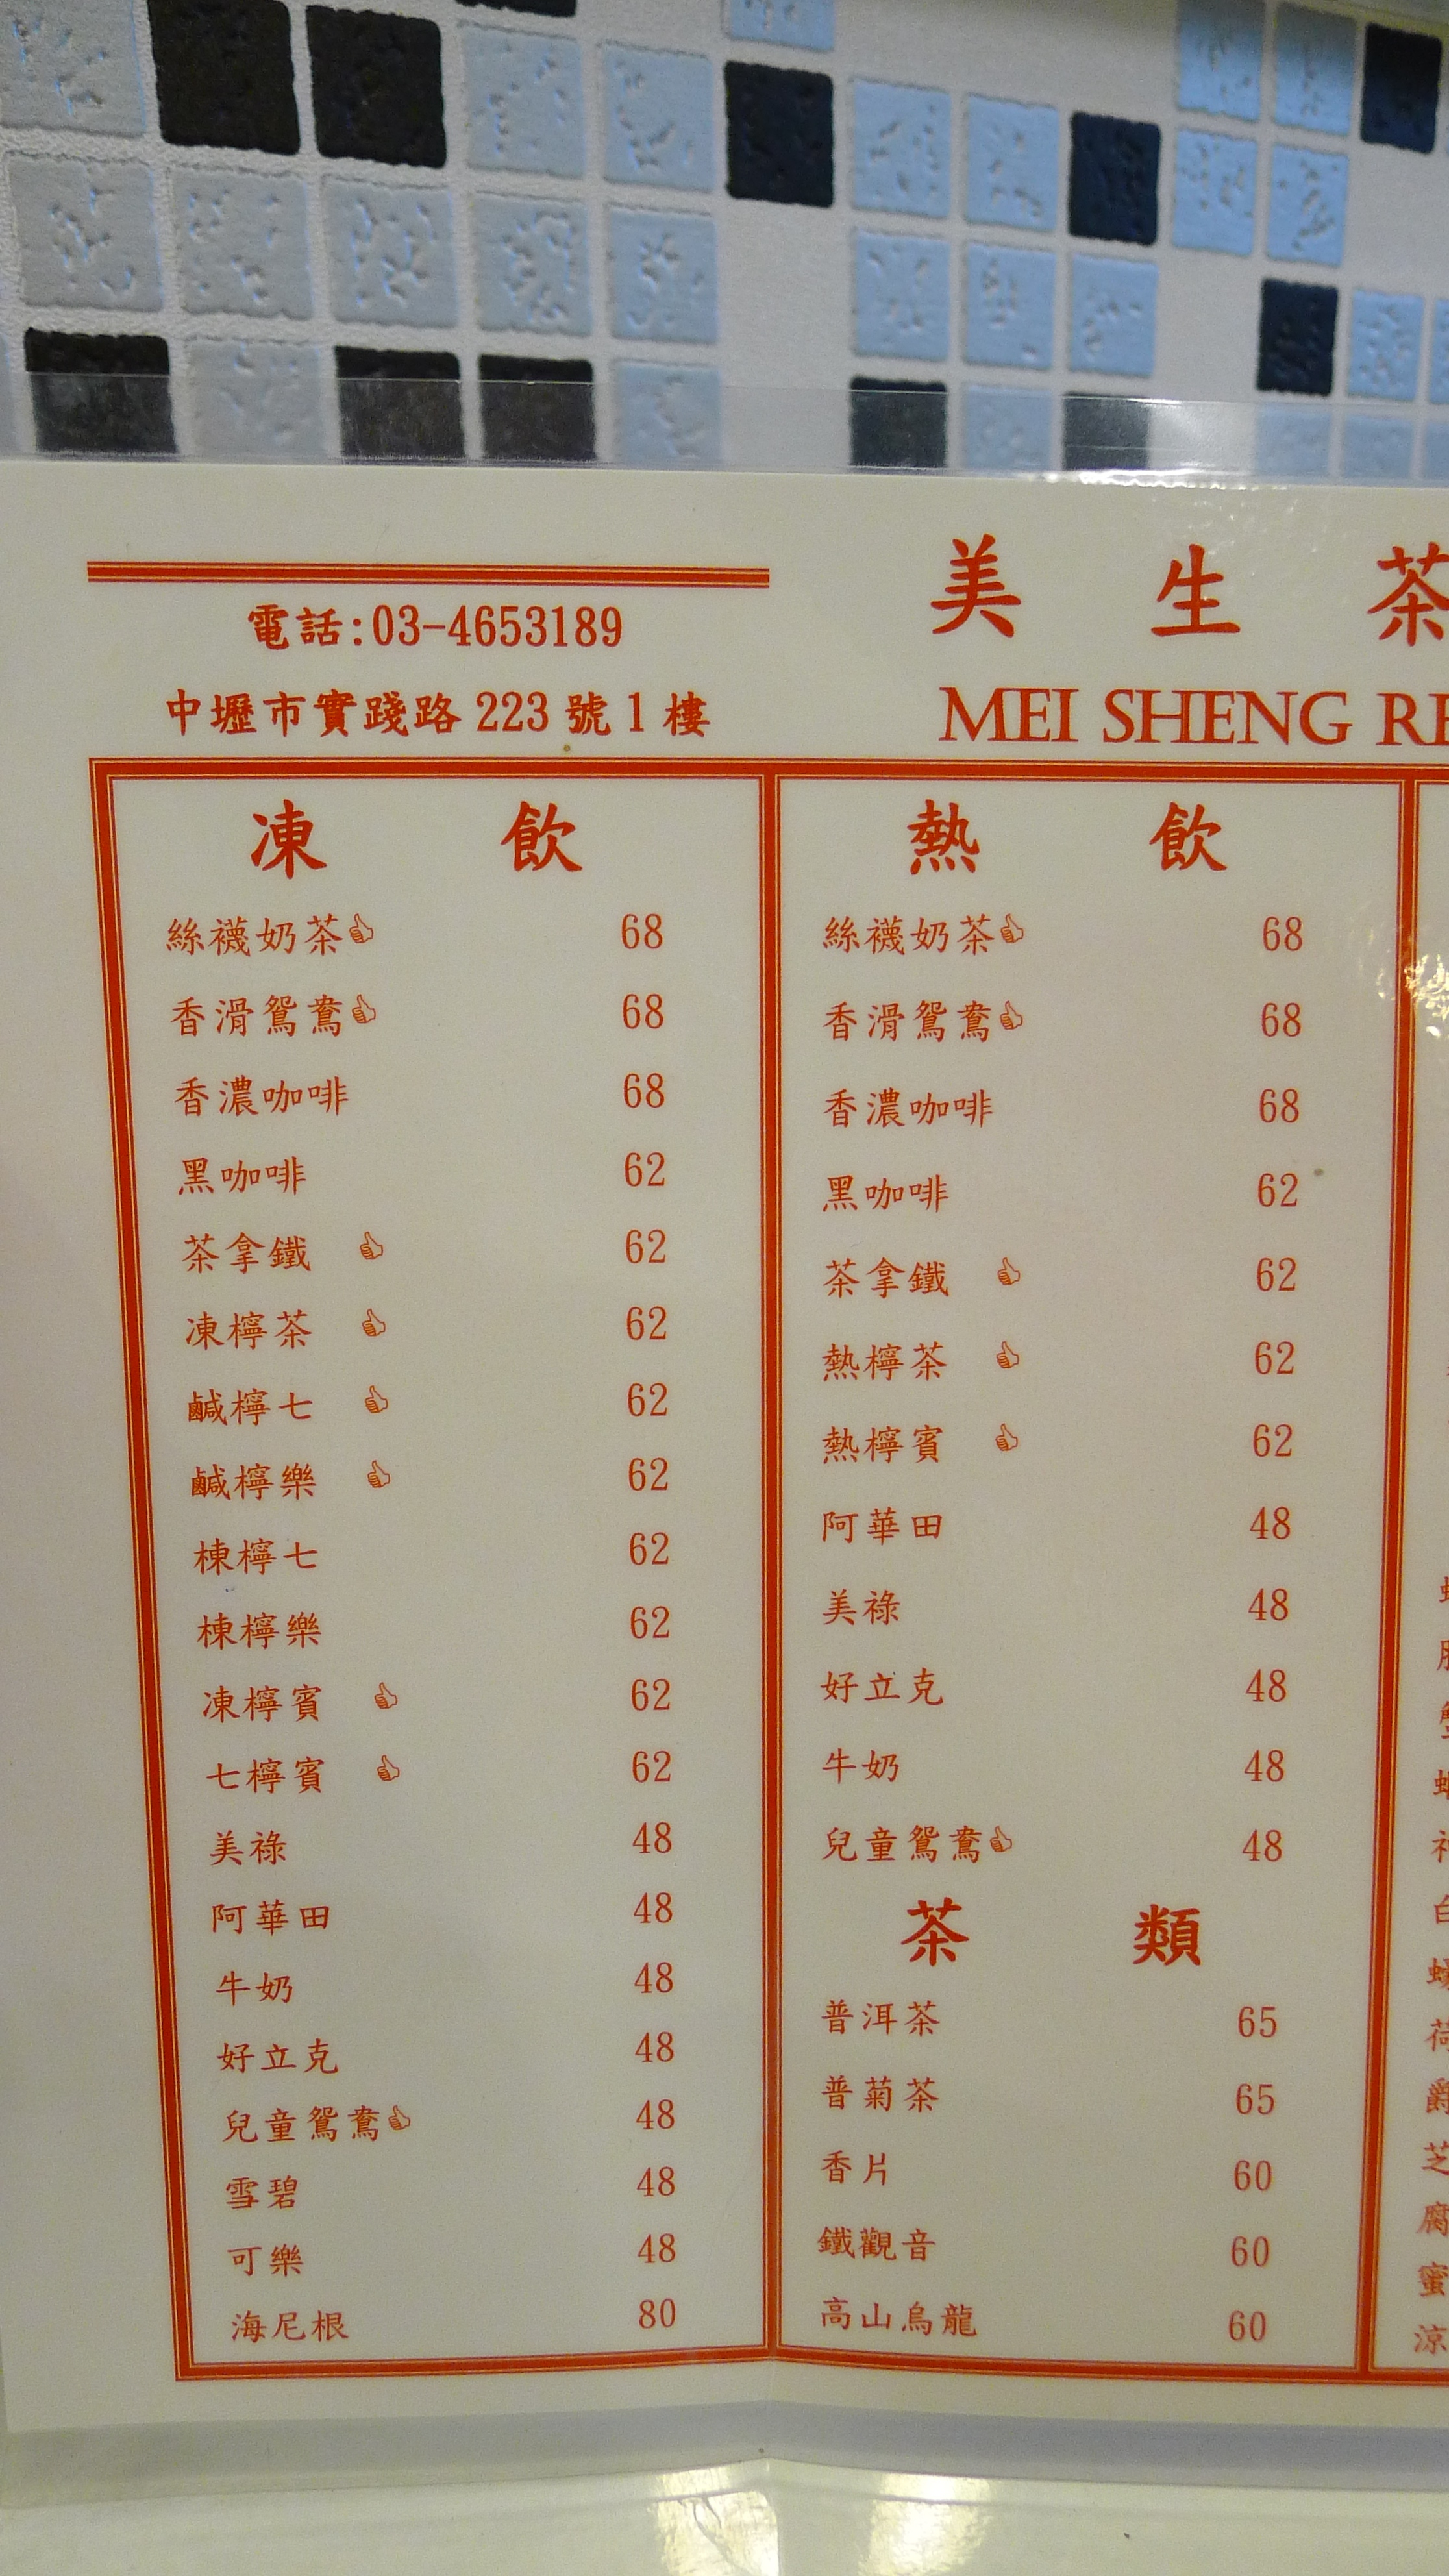 電話:03-4653189
中壢市實踐路 223 號 1 樓
美 生 茶
MEI SHENG RE
凍 飲
絲襪奶茶👍 68
香滑鴛鴦👍 68
香濃咖啡 68
黑咖啡 62
茶拿鐵 👍 62
凍檸茶 👍 62
鹹檸七 👍 62
鹹檸樂 👍 62
棟檸七 62
棟檸樂 62
凍檸賓 👍 62
七檸賓 👍 62
美祿 48
阿華田 48
牛奶 48
好立克 48
兒童鴛鴦👍 48
雪碧 48
可樂 48
海尼根 80
熱 飲
絲襪奶茶👍 68
香滑鴛鴦👍 68
香濃咖啡 68
黑咖啡 62
茶拿鐵 👍 62
熱檸茶 👍 62
熱檸賓 👍 62
阿華田 48
美祿 48
好立克 48
牛奶 48
兒童鴛鴦👍 48
茶 類
普洱茶 65
普菊茶 65
香片 60
鐵觀音 60
高山烏龍 60